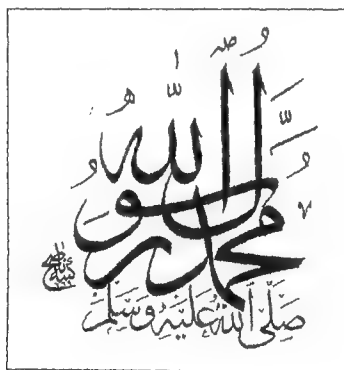 محمد رسول الله
صَلَّى اللهُ عَلَيْهِ وَسَلَّمَ